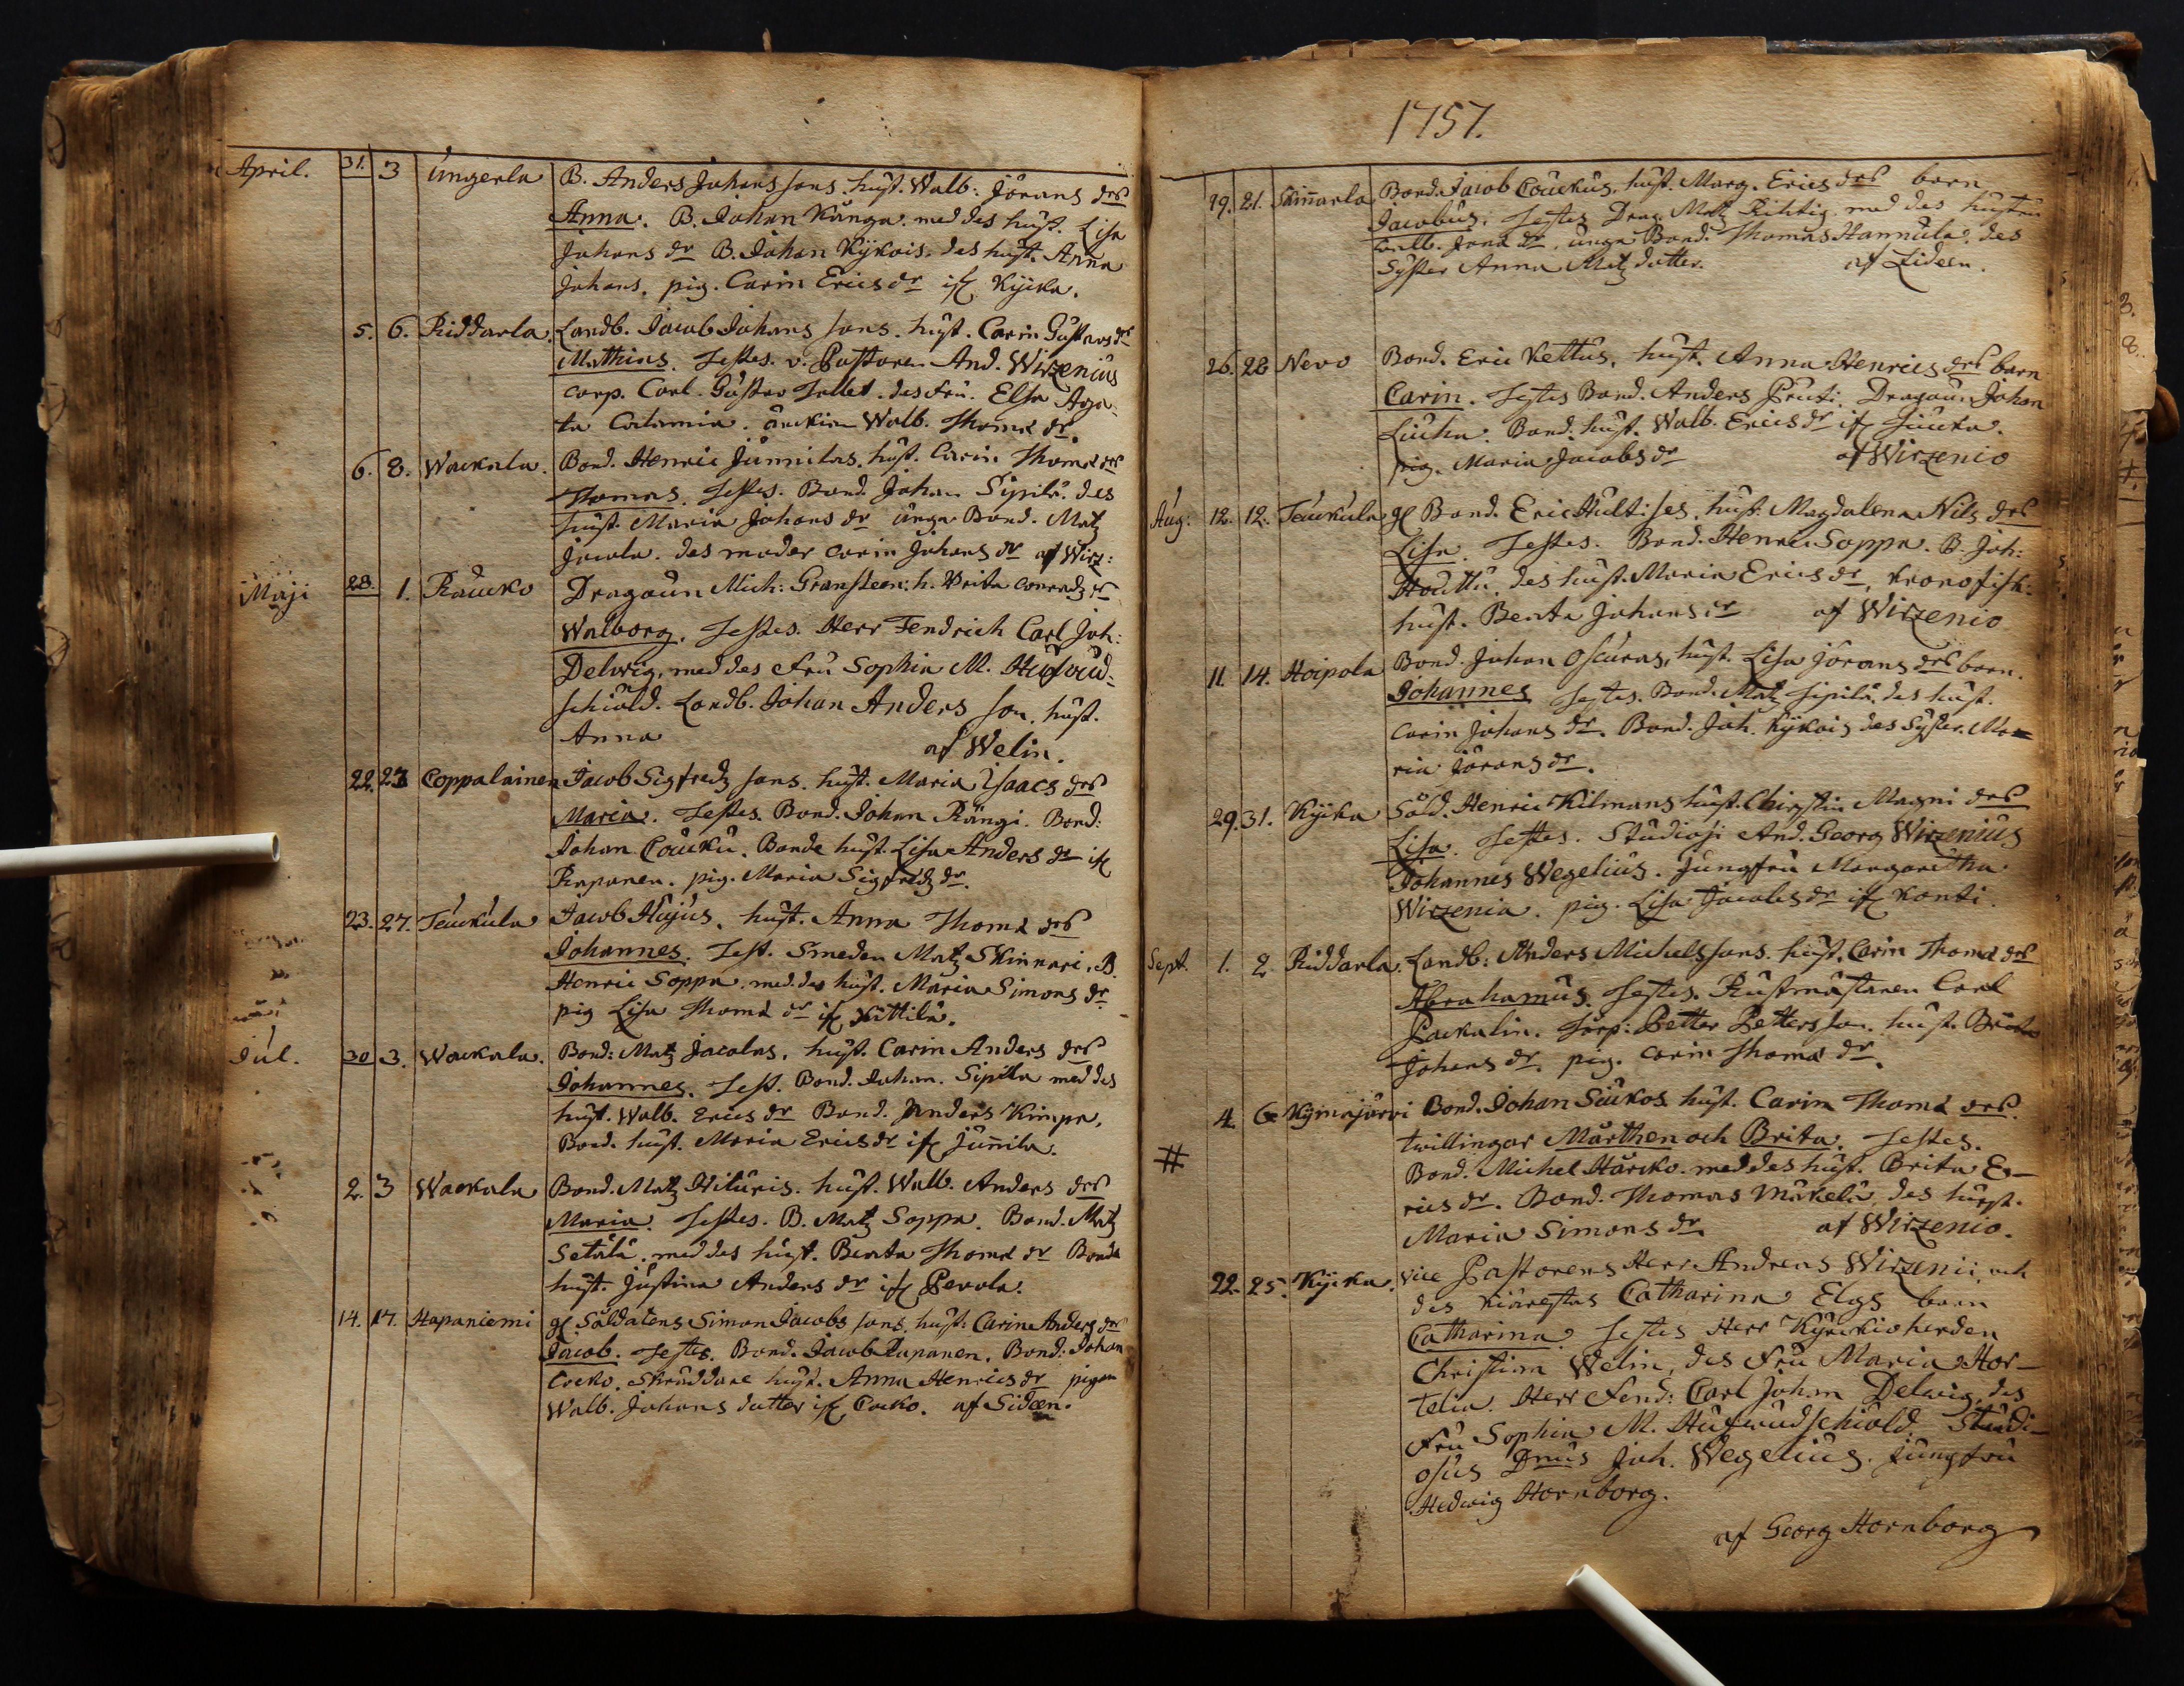 April. 31. 3 Ungerla B. Anders Johans sons hust. Walb: Jörans drs
Anna. B. Johan Kånga. med des hust. Lisa
Johans dr B. Johan Kÿkois. des hust. Anna
Johans. pig. Carin Erics dr if Kÿcka.
5. 6. Riddarla. Landb. Jacob Johans sons hust. Carin Gustavs dr
Mathias. Testes. v. Pastoren And. Wirzenius
Corp. Carl Gustav des Fru. Elsa Aga-
ta Calamia. änckian Walb. Thomæ dr.
6. 8. Wackala. Bond. Henric Junnilas. hust. Carin Thomæ drs
Thomas. Testes. Bond. Johan Sipilä. des
hust. Maria Johans dr unga Bond. Matz
Jacola. des moder Carin Johans dr af Wirz:
Maji 28. 1. Raucko Dragoun Mich: Gransteen: h. Brita Conradz dr
Walborg. Testes. Herr Fendrich Carl Joh:
Delwig, med des Fru Sophia M. Hufwud-
schiöld. Landb. Johan Anders son, hust.
Anna af Welin.
22. 23 Coppalainen Jacob Sigfredz sons hust. Maria Isaacs drs
Maria. Testes. Bond. Johan Rångi. Bond:
Johan Coucku. Bonde hust. Lisa Anders dr if
Rapanen. pig. Maria Sigfredz dr.
23. 27. Teuckula Jacob Hujus. hust. Anna Thomæ drs
Johannes. Test. Smeden Matz Skinnari. B.
Henric Soppa. med des hust. Maria Simons dr
pig Lisa Thomæ dr if Kittilä.
Jul. 30 3. Wackala. Bond: Matz Jacolas. hust. Carin Anders drs
Johannes. Test. Bond. Johan. Sipilla med des
hust. Walb. Erics dr Bond. Anders Kimpa.
Bond. hust. Maria Erics dr if Junnila.
2. 3 Wackala Bond. Matz Hiluris. hust. Walb. Anders drs
Maria. Testes. B. Matz Soppa. Bond. Matz
Setälä. med des hust. Beata Thomæ dr Bonde
hust. Justina Anders dr if Pevola.
14. 17. Hapaniemi gl. Soldatens Simon Jacobs sons hust: Carin Anders dr
Jacob. Testes. Bond. Jacob Rapanen. Bond: Johan
Cocko. Skräddare hust. Anna Henrics dr pigan
Walb. Johans dotter if Cocko. af Sideen.
1757.
19. 21. Skinnarla Bond. Jacob Couckus. hust. Marg. Erics drs barn
Jacobus. Testes Drag. Matz Richtig. med des hustru
Walb. dr. unga Bond. Thomas Hannula. des
Syster Anna Matz dotter. af Sideen.
26. 28 Nevo Bond. Eric Kettus, hust. Anna Henrics drs barn
Carin. Testes Bond. Anders Pruti. Dragoun Johan
Liuha. Bond. hust. Walb. Erics dr if Jiucka.
pig. Maria Jacobs dr af Wirzenio
Aug. 12. 12. Teuckula gl Bond. Eric Hult: ses, hust: Magdalena Nils drs
Lisa. Testes. Bond. Henric Soppa. B. Joh:
Houttu. des hust. Maria Erics dr, kronofisk:
hust. Beata Johans dr af Wirzenio
11. 14. Hoipola Bond. Johan Oscaras, hust. Lisa Jörans drs barn.
Johannes Testes. Bond. Matz Sipilä. des hust.
Carin Johans dr. Bond. Joh. Kÿkois des Syster. Ma=
ria Jörans dr.
29. 31. Kÿcka Sold. Henric Kilmans hust. Christin Magni drs
Lisa. Testes. Studiosi And. Georg Wirzenius
Johannes Wegelius. Jungfru Margaretha
Wirzenia. pig. Lisa Jacobs dr if Konti.
Sept. 1. 2. Riddarla. Landb: Anders Michelssons hust. Carin Thomæ drs
Abrahamus. Testes. Rustmästaren Carl
Packalin. Torp: Petter Petters son. hust. Brita
Johans dr. pig. Carin Thomæ dr.
# 4. 6 Kymajärvi Bond. Johan Siukos hust. Carin Thomæ drs.
twillingar Marthen och Brita. Testes.
Bond. Michel Härcko. med des hust. Brita E-
rics dr. Bond. Thomas Mäkelä des hust.
Maria Simons dr af Wirzenio.
22. 25. Kÿcka. Vice Pastorens Herr Andreas Wirzenii, och
des kiärestas Catharina Elgs barn
Catharina. Testes Herr Kyrckioherden
Christian Welin, des Fru Maria Hor-
telia. Herr Fend: Carl Johan Delwig, des
Fru Sophia M. Hufwudschiöld. Studi-
osus Dnus Joh. Wegelius. Jungfru
Hedwig Hornborg.
af Georg Hornborg